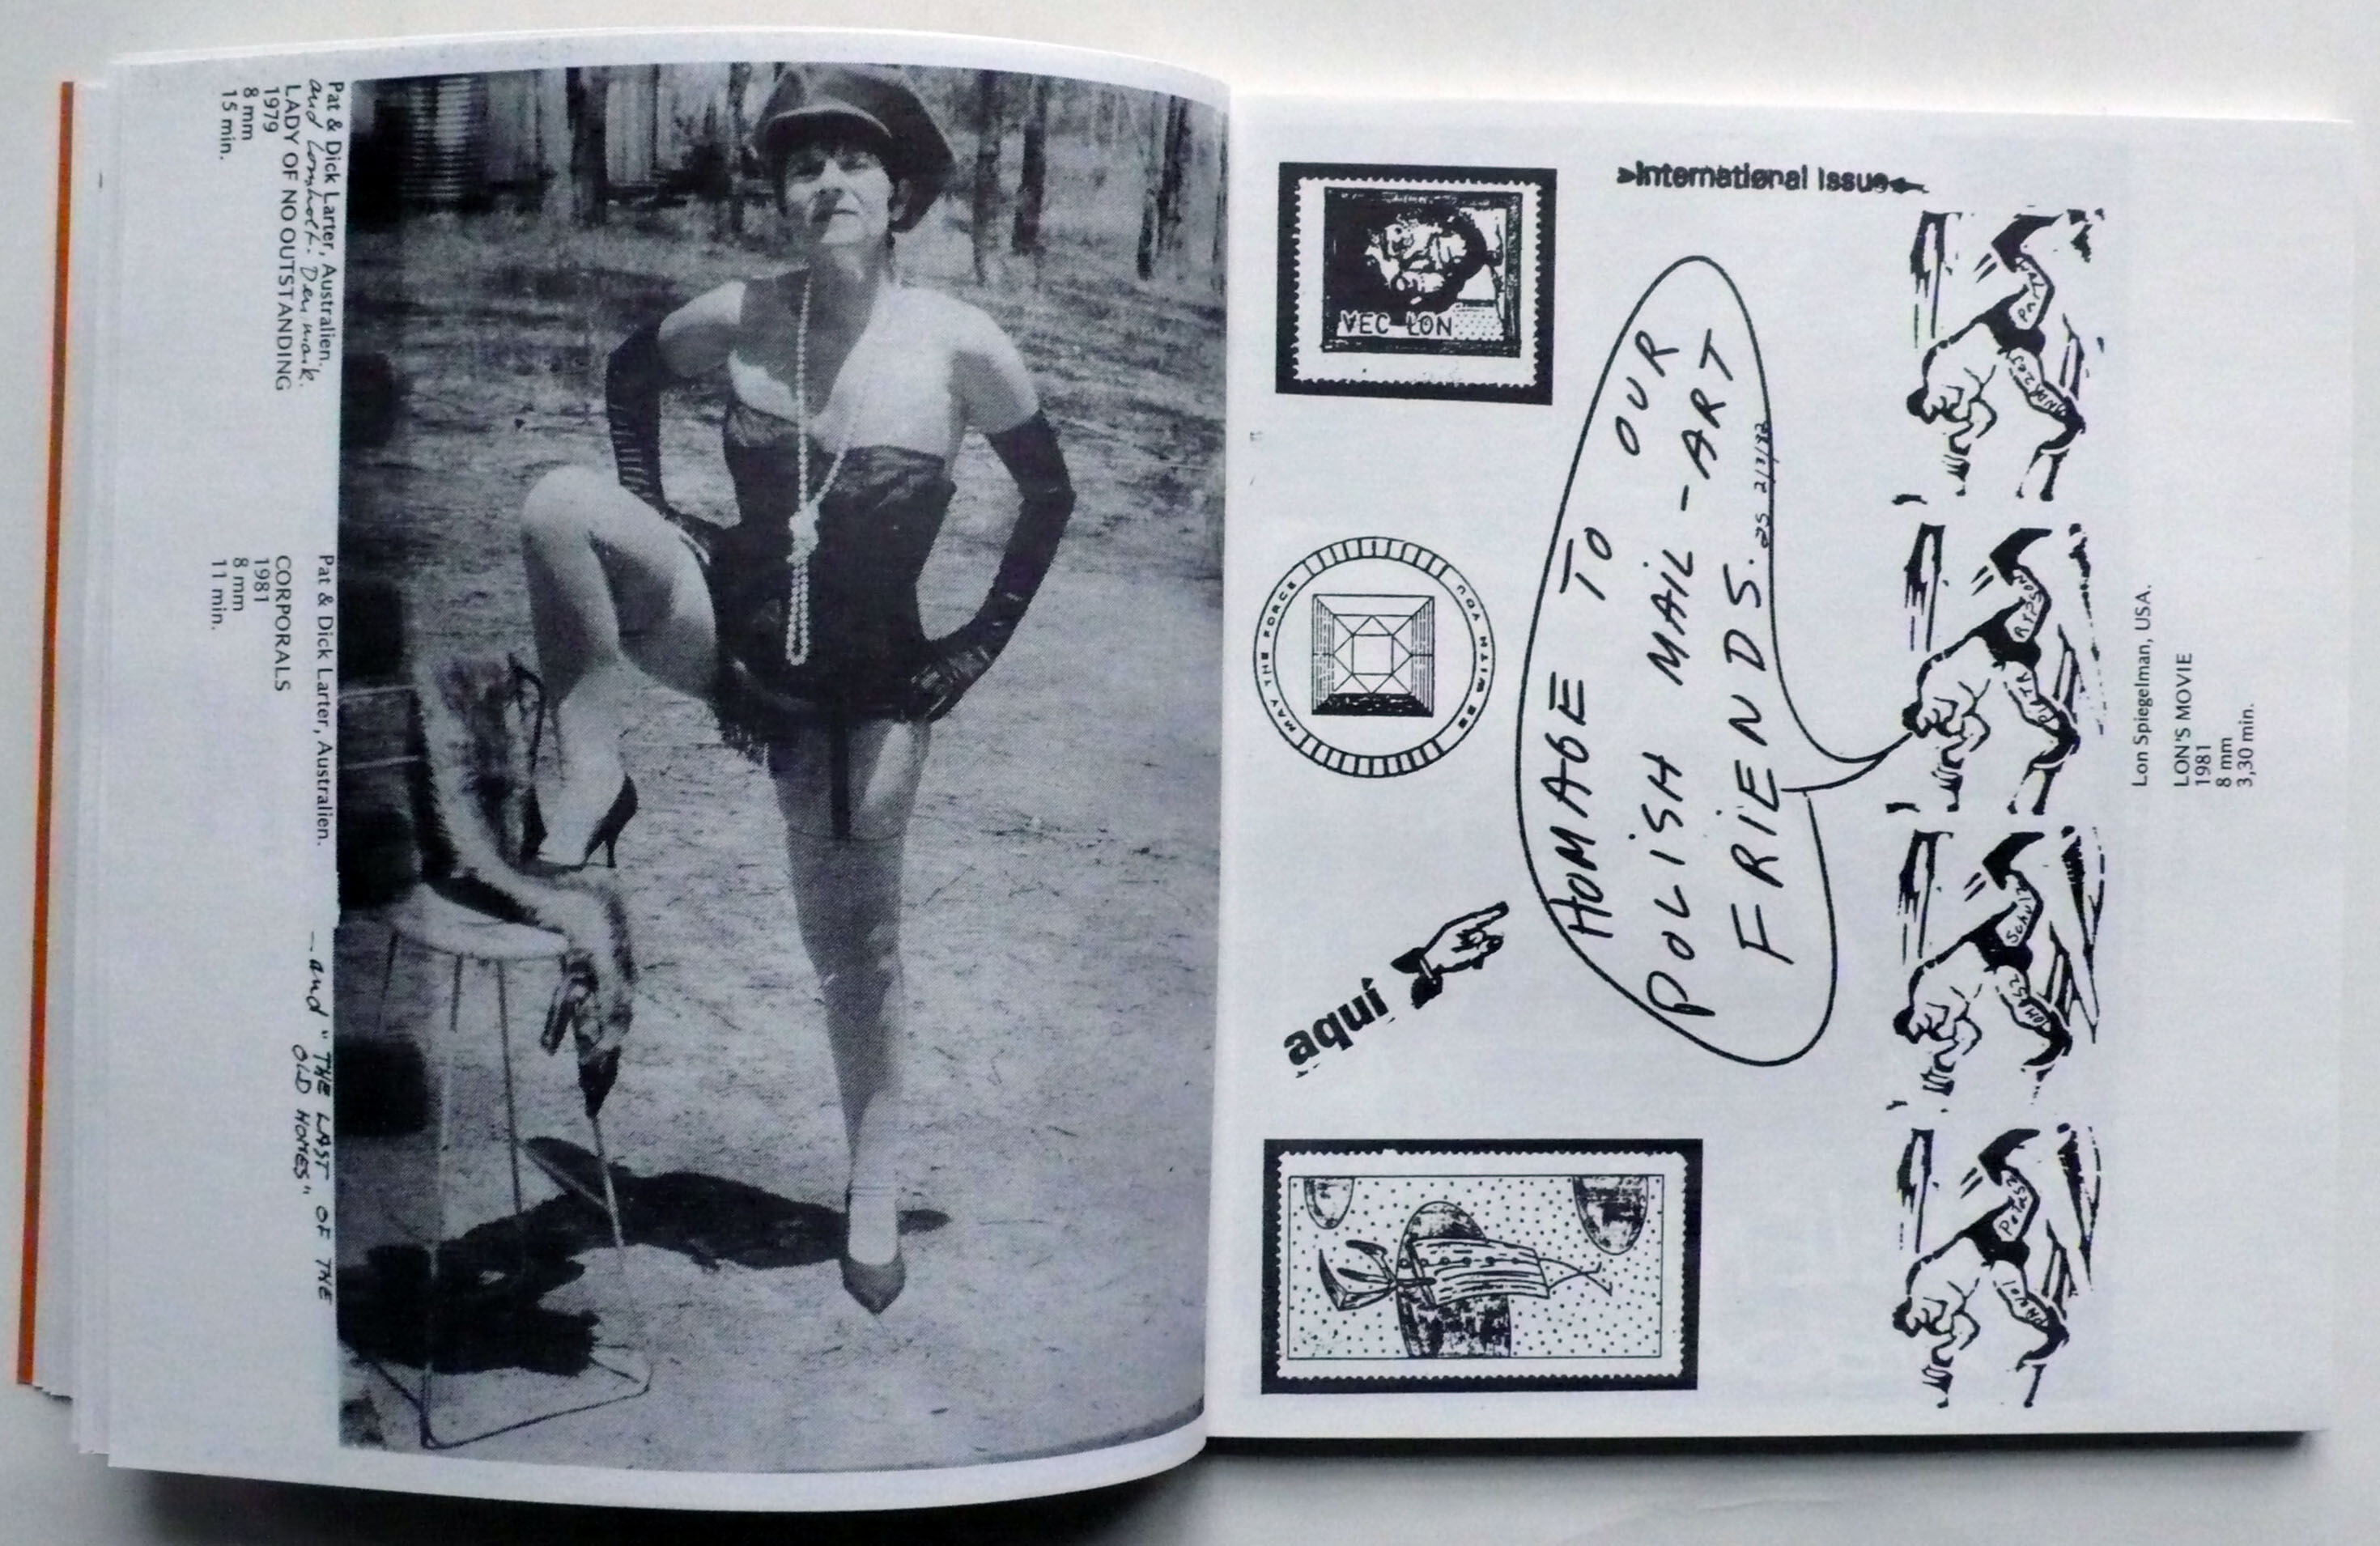 Pat & Dick Larter, Australien.
and Lomholt. Denmark.
LADY OF NO OUTSTANDING
1979
8 mm
15 min.
Pat & Dick Larter, Australien.
CORPORALS
1981
8 mm
11 min.
— and "THE LAST OF THE
OLD HOMES"
International Issue
VEC LON
HOMAGE TO OUR
POLISH MAIL-ART
FRIENDS.
MAY THE FORCE
BE WITH YOU
aquí
Lon Spiegelman, USA.
LON'S MOVIE
1981
8 mm
3,30 min.